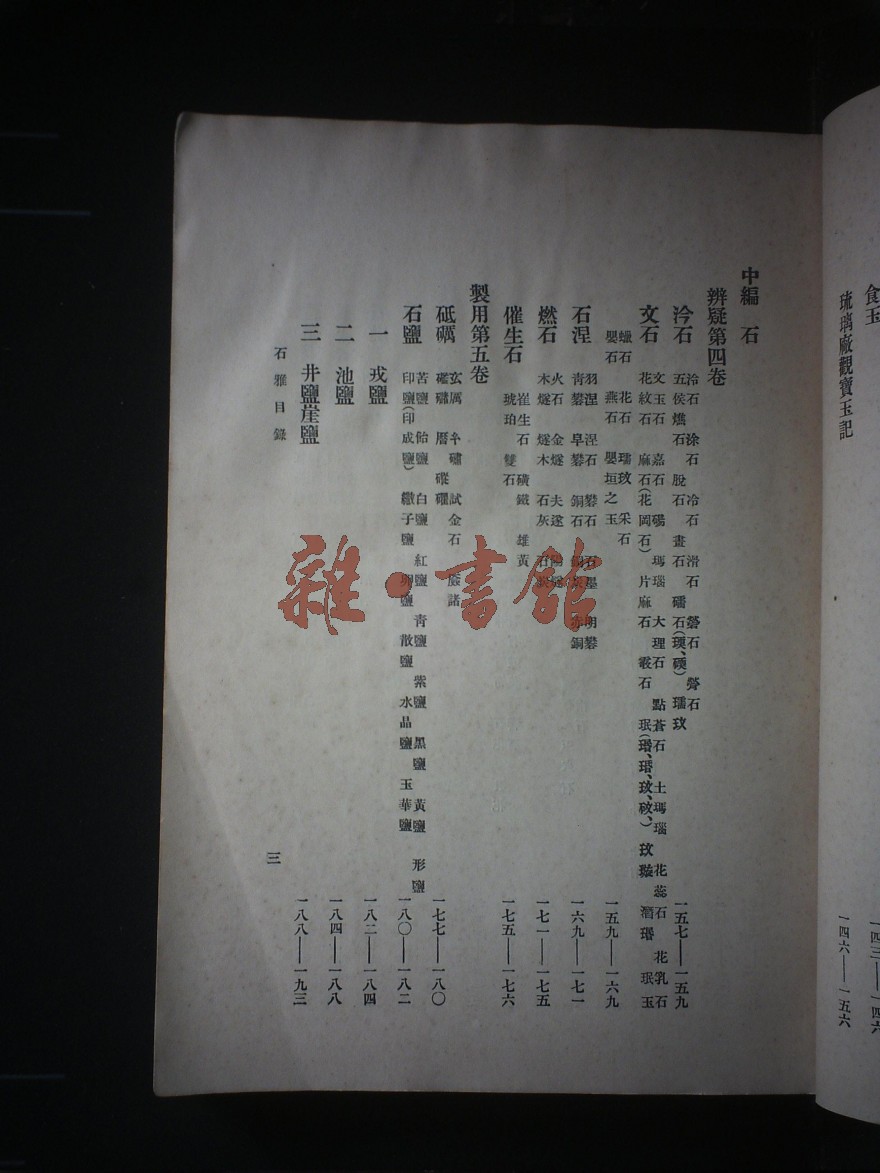 食玉
一四三——一四六
琉璃廠觀寶玉記
一四六——一五六
中編 石
辨疑第四卷
泠石
泠石 涂石 冷石 滑石 礬石 礜石
五侯燋石 脫石 畫石 礌石 瓀玟
一五七——一五九
文石
文玉石 嘉石 碭 瑪瑙 大理石 點蒼石 土瑪瑙 花蕊石 花乳石
花紋石 麻石(花岡石) 片麻石 叢石 珉 玟 珉玉
蠟石 花石 瓀玟 采石
嬰石 燕石 嬰垣之玉
一五九——一六九
石涅
羽涅 涅石 礬石 石墨 明礬
青礬 皁礬 銅石 赤銅
一六九——一七一
燃石
火石 金燧 夫遂 陽燧
木燧 燧木 石灰 石炭
一七一——一七五
催生石
崔生石 磺鐵 雄黃
琥珀 雙石
一七五——一七六
製用第五卷
砥礪
玄厲 試金石 諸
礛 磿
一七七——一八〇
石鹽
苦鹽 飴鹽 白鹽 紅鹽 青鹽 紫鹽 黑鹽 黃鹽 形鹽
印鹽(印成鹽) 繖子鹽 散鹽 水晶鹽 玉華鹽
一八〇——一八二
一 戎鹽
一八二——一八四
二 池鹽
一八四——一八八
三 井鹽崖鹽
一八八——一九三
石雅目錄
三
雜·書館